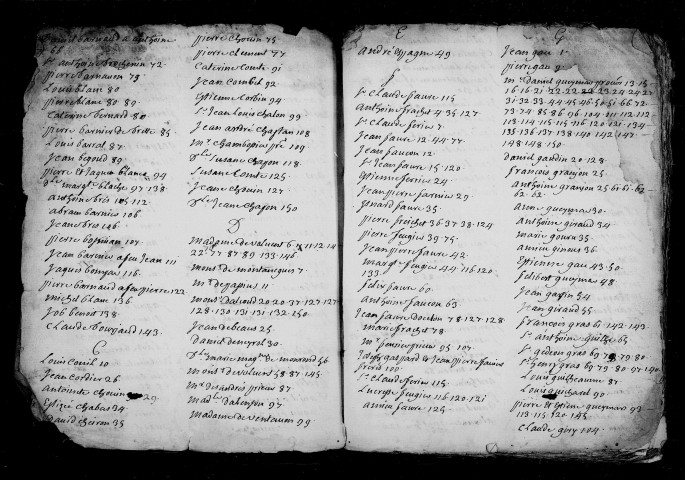 Daniel barnaud a anthoine
66
Sr anthoine brechenin 72
pierre barnavon 79
Louis blanc 80
pierre blanc 80 89
Caterine bernard 80
pierre barnier de brette 85
Louis barral 87
Jean begoud 89
pierre et Jaques blanc 94
Dlle margte blache 97 138
anthoine bres 105 112
abram barnier 106
Jean bres 106
pierre 107
Jean barnier a feu Jean 111
Jaques bonyas 116
pierre barnaud a feu pierre 122
michel blanc 136
Job benoit 138
Claude bouvard 143
C
Louis Comil 10
Jean Cordier 26
Antoinete Chouin 29
Estère Chabas 34
David Cheiron 35
pierre Chouin 75
pierre Clement 77
Caterine Comte 91
Jean Combel 92
Estienne Corbin 94
Sr Jean Louis Chalon 99
Jean andré Chastan 108
Mr Chambopin pre 109
Dlle Susane Chapon 118
Susane Comte 125
Jean Chouin 127
Sr Jean Chason 150
D
Madame de valouse 6 11 12 14
22 77 87 89 133 146
Monsr de montauques 7
Mr Desapius 11
Monsr Daloud 20 20 37 127 127
128 130 131 131 132 150
Jean debeaux 25
Daniel demyrol 30
Dlle marie magne de marcand 56
Monsr de valouse 58 87 145
Mr Deandres prieur 87
Made Dalençon 97
Madame de Ventavon 99
E
André Espagne 49
F
Sr Claude faure 115
Anthoine frachet 4 35 127
Sr Claude feries 7
Jean faure 12 44 77
Jean faucon 12
Sr Jean faure 15 120
Etienne feries 24
Jean pierre farnier 29
Isnard faure 35
pierre freichet 36 37 38 124
pierre feugier 39 75
Jean pierre faure 42
Margte feugier 44 116 120
133
felix faure 60
Anthoine faucon 63
Jean faure Docton 78 127 128
Marie frachet 78
Mr prieur 95 107
Joseph gaspard & Jean pierre faures
freres 100
Sr Claude feries 115
Lucresse feugier 116 120 121
André faure 125
G
Jean gau 1
pierre gau 9
Mr Daniel gueymar prieur 13 15
16 16 21 22 22 23 24 24 27
31 32 33 44 45 46 51 51 66 72
73 74 85 86 96 104 111 112 112
113 114 115 115 116 120 121 134
135 136 137 138 140 142 147
148 148 150
Daniel gardin 20 128
francois granjon 25
Anthoine granjon 25 61 61 62
62 62
Anne gueymar 30
Anthoine girard 34
Marie goura 35
André ginoux 36
Estienne gau 43 50
Felibert gueymar 48
Jean garcin 54
Jean giraud 55
francois gras 61 142 143
Sr anthoine guilhe 65
Sr gedeon gras 69 73 79 80
Sr henry gras 69 79 80 97 140
Louis guilheaume 87
Louis guichard 90
pierre et Etienne gueymar 93
113 115 120 145
Claude giry 104